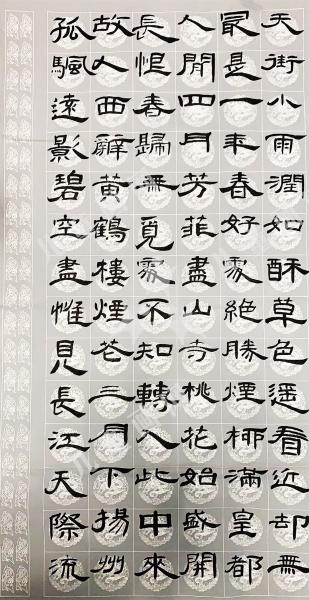 天街小雨潤如酥草色遥看近却無
最是一年春好處絶勝煙柳滿皇都
人間四月芳菲盡山寺桃花始盛開
長恨春歸無覓處不知轉入此中來
故人西辭黃鶴樓煙花三月下揚州
孤颿遠影碧空盡惟見長江天際流